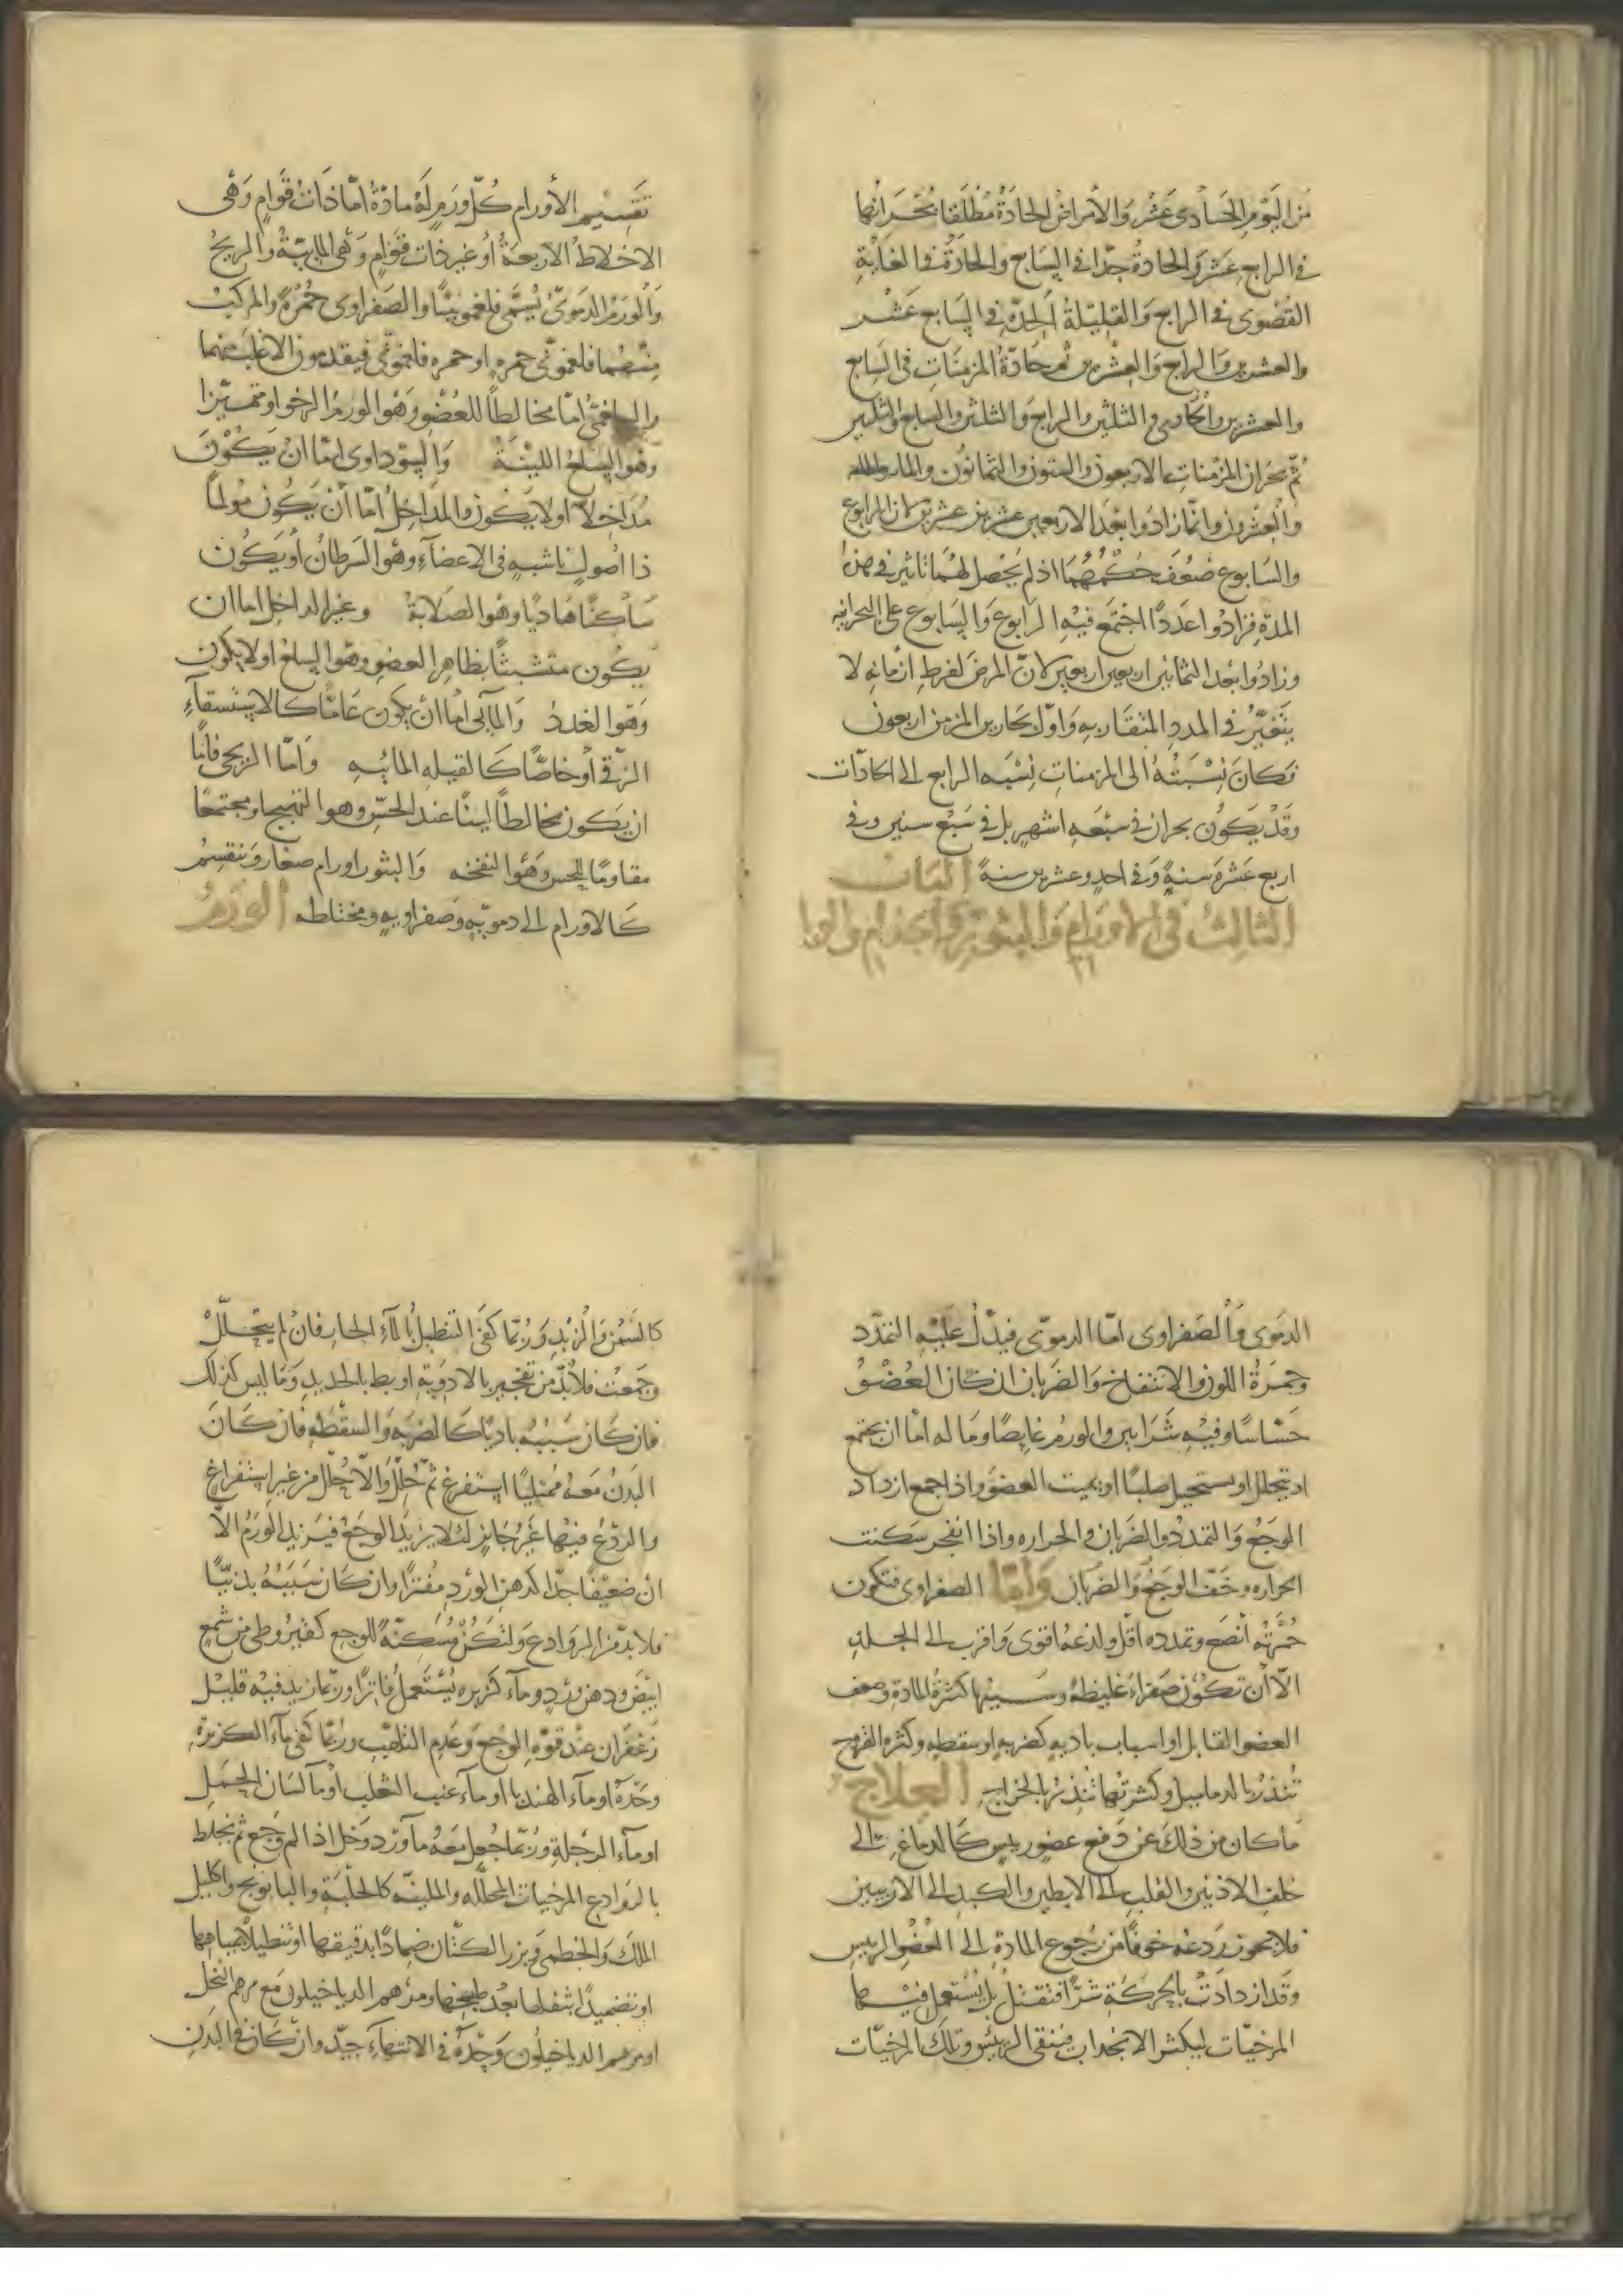 من اليوم الحادى عشر والأمراض الحادة مطلقا بحرانها
فى الرابع عشر والحادة جدا فى السابع والحادة فى الغاية
القصوى فى الرابع والقليلة الحدة فى السابع عشر
والعشرين والرابع والعشرين ثم حادة المزمنات فى السابع
والعشرين والحادى والثلثين والرابع والثلثين والسابع والثلثين
ثم بحران المزمنات الاربعون والستون والثمانون والمائة
والعشرون وانما زادوا بعد الاربعين عشرين عشرين لان الرابوع
والسابوع ضعف حكمهما اذ لم يحصل لهما تاثير فى هذه
المدة فزادوا عددا اجتمع فيه الرابوع والسابوع على البحرانيه
وزادوا بعد الثمانين اربعين اربعين لان المرض لفرط ازمانه لا
يتغير فى المدد المتقاربه واول بحارين المزمن اربعون
فكان نسبته الى المزمنات نسبه الرابع الى الحادات
وقد يكون بحران فى سبعه اشهر بل فى سبع سنين وفى
اربع عشرة سنة وفى احد وعشرين سنة الباب
الثالث فى الاورام والبثور والجذام والوبا
تقسيم الأورام كل ورم له مادة اما ذات قوام وهى
الاخلاط الاربعة أو غير ذات قوام وهى المايية والريح
والورم الدموى يسمى فلغمونيا والصفراوى حمرة والمركب
منهما فلغمونى حمره او حمره فلغمونى فيقدمون الاغلب منهما
والبلغمى اما مخالطا للعضو وهو الورم الرخو او متميزا
وهو السلع اللينة والسوداوى اما ان يكون
مداخلا اولا يكون والمداخل اما أن يكون مولما
ذا اصول ناشبه فى الاعضآء وهو السرطان أو يكون
ساكنا هاديا وهو الصلابة وغير المداخل اما ان
يكون متشبثا بظاهر العضو وهو السلع اولا يكون
وهو الغدد والمائى اما ان يكون عاما كالاستسقآء
الزقى أو خاصا كالقيله المائيه واما الريحى فاما
ان يكون مخالطا لينا عند الحس وهو التهيج او مجتمعا
مقاوما للحس وهو النفخه والبثور اورام صغار وتنقسم
كالاورام الى دمويه وصفراويه ومختلطه الورم
الدموى والصفراوى اما الدموى فيدل عليه التمدد
وحمرة اللون والانتفاخ والضربان ان كان العضو
حساسا وفيه شرايين والورم غايصا وما له اما ان يجتمع
او يتحلل او يستحيل صلبا او يميت العضو واذا جمع ازداد
الوجع والتمدد والضربان والحراره واذا انفجر سكنت
الحراره وخف الوجع والضربان واما الصفراوى فتكون
حمرته أنصع وتمدده اقل ولذعه اقوى واقرب الى الجلد
الا أن تكون صفراء غليظة وسببها كثرة المادة وضعف
العضو القابل او اسباب باديه كضربه او سقطه وكثره القروح
تنذر بالدماميل وكثرتها تنذر بالخراج العلاج
ماكان من ذلك عن دفع عضو رييس كالدماغ الى
خلف الاذنين والقلب الى الابطين والكبد الى الاربيتين
فلا يجوز ردعه خوفا من رجوع المادة الى العضو الرييس
وقد ازدادت بالحركة شرا فتقتل بل يستعمل فيها
المرخيات ليكثر الانجذاب فينقى الرئيس وتلك المرخيات
كالسمن والزبد وربما كفى التنطيل بالمآء الحار فان لم يتحلل
وجمعت فلابد من تفجير بالادوية او بط بالحديد وما ليس كذلك
فان كان سببه باديا كالضربه والسقطه فان كان
البدن معه ممتليا استفرغ ثم حلل والا حلل من غير استفراغ
والردع فيها غير جايز لئلا يزيد الوجع فيزيد الورم الا
ان ضعيفا جدا كدهن الورد مفترا وان كان سببه بدنيا
فلابد من الروادع ولتكن مسكنة للوجع كقيروطى من شمع
ابيض ودهن ورد ومآء كزبره يستعمل فاترا وربما زيد فيه قليل
زعفران عند قوة الوجع وعدم التلهب وربما كفى مآء الكزبرة
وحده او مآء الهندبا او مآء عنب الثعلب أو مآ لسان الحمل
او مآء الرجلة وربما جعل معه مآ ورد وخل اذا لم وجع ثم يخلط
بالروادع المرخيات المحلله والملينه كالحلبة والبابونج واكليل
الملك والخطمى وبزر الكتان ضمادا بدقيقها او تنطيلا بمياهها
او تضميدا بثفلها بعد طبخها ومرهم الدياخيلون مع مرهم النخل
او مرهم الدياخيلون وحده فى الانتهآء جيد وان كان فى البدن